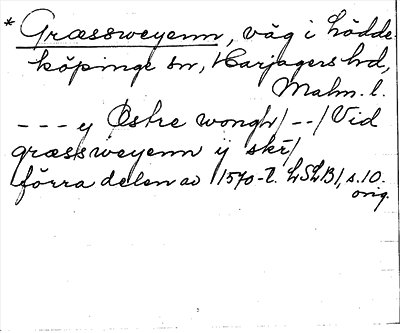 * Græssweyenn, väg i Lödde-
köpinge sn, Harjagers hd,
Malm. l.
- - - ey Østre wongh / - - / Vid
græssweyenn ij skr̄ /
förra delen av 1570-t. LSLB1, s. 10.
orig.